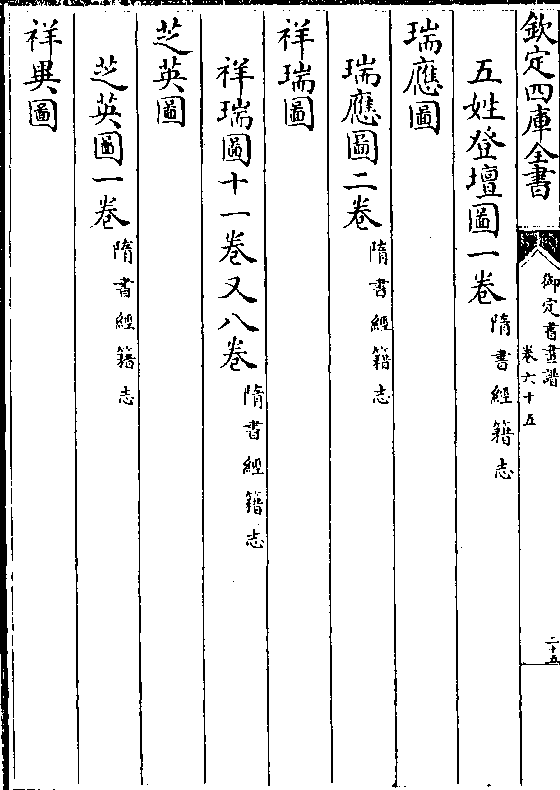 欽定四庫全書
御定書畫譜
卷六十五
二十五
五姓登壇圖一卷隋書經籍志
瑞應圖
瑞應圖二卷隋書經籍志
祥瑞圖
祥瑞圖十一卷又八卷隋書經籍志
芝英圖
芝英圖一卷隋書經籍志
祥異圖